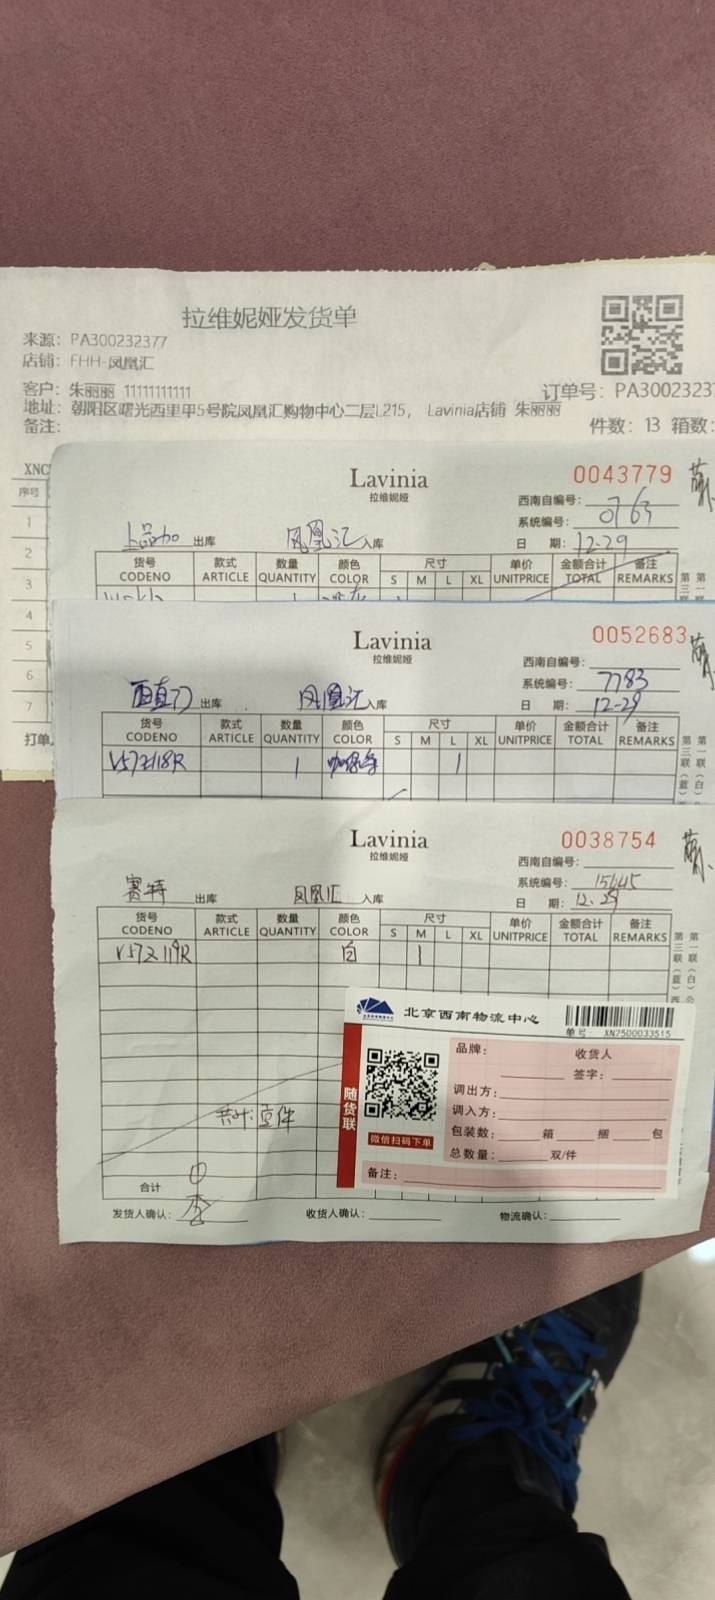 拉维妮娅发货单
来源: PA300232377
店铺: FHH-凤凰汇
客户: 朱丽丽 11111111111
订单号: PA3002323
地址: 朝阳区曙光西里甲5号院凤凰汇购物中心二层L215, Lavinia店铺 朱丽丽
备注:
件数: 13 箱数:
XNC
序号
1
2
3
4
5
6
7
打单
Lavinia
拉维妮娅
0043779
西南自编号:
系统编号: 0763
出库 凤凰汇 入库
日 期: 12-29
货号 CODENO 款式 ARTICLE 数量 QUANTITY 颜色 COLOR 尺寸 S M L XL 单价 UNITPRICE 金额合计 TOTAL 备注 REMARKS
Lavinia
拉维妮娅
0052683
西南自编号:
系统编号: 7783
西直门 出库 凤凰汇 入库
日 期: 12-29
货号 CODENO 款式 ARTICLE 数量 QUANTITY 颜色 COLOR 尺寸 S M L XL 单价 UNITPRICE 金额合计 TOTAL 备注 REMARKS
V57Z118R 1 1
Lavinia
拉维妮娅
0038754
西南自编号:
系统编号: 15645
赛特 出库 凤凰汇 入库
日 期: 12.29
货号 CODENO 款式 ARTICLE 数量 QUANTITY 颜色 COLOR 尺寸 S M L XL 单价 UNITPRICE 金额合计 TOTAL 备注 REMARKS
V57Z119R 白 1
共计: 壹件
合计
发货人确认: 收货人确认: 物流确认:
北京西南物流中心
单号: XN7500033515
随货联
微信扫码下单
品牌: 收货人
签字:
调出方:
调入方:
包装数: 箱 捆 包
总数量: 双/件
备注: